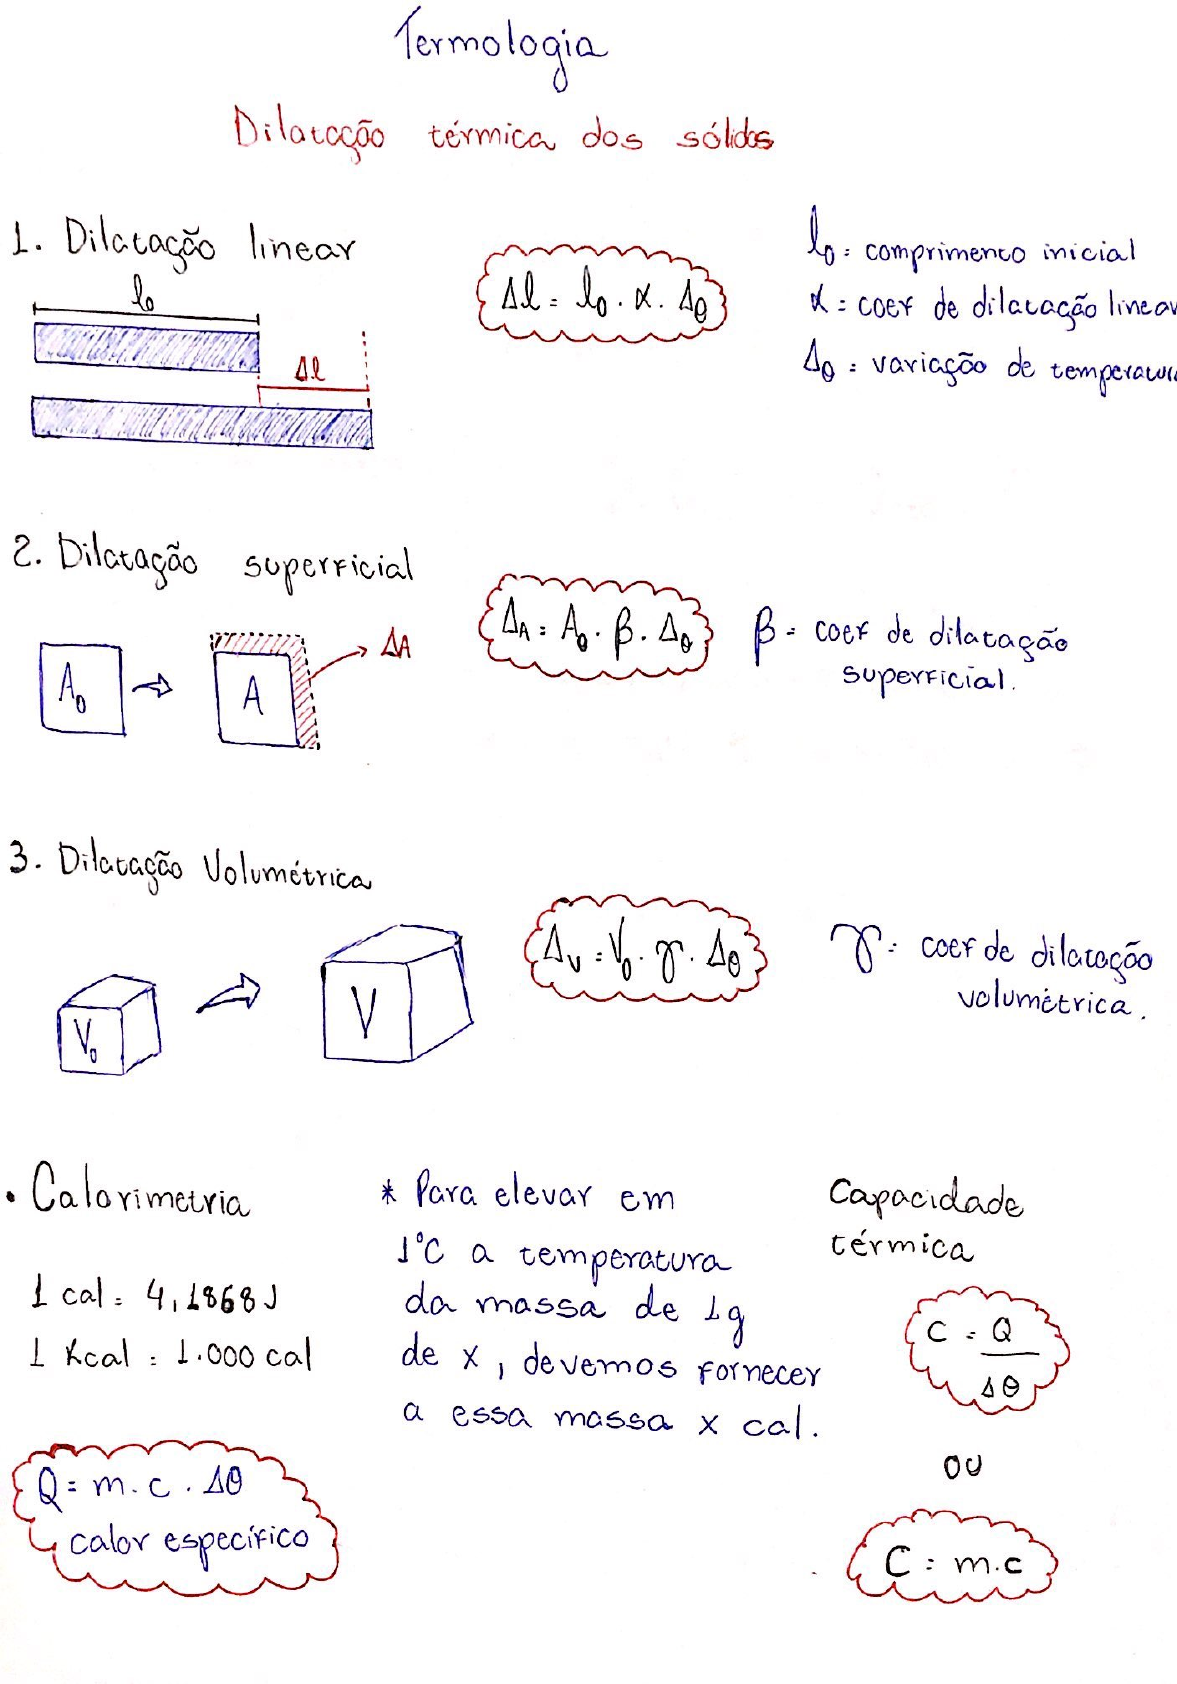 Termologia
Dilatação térmica dos sólidos
1. Dilatação linear
l₀
Δl
Δl = l₀ . α . Δθ
l₀ = comprimento inicial
α = coef de dilatação linear
Δθ = variação de temperatura
2. Dilatação superficial
A₀
A
ΔA
ΔA = A₀ . β . Δθ
β = coef de dilatação
superficial.
3. Dilatação Volumétrica
V₀
V
Δv = V₀ . γ . Δθ
γ = coef de dilatação
volumétrica.
• Calorimetria
1 cal = 4,1868 J
1 Kcal = 1.000 cal
Q = m . c . Δθ
calor específico
* Para elevar em
1°C a temperatura
da massa de 1g
de x, devemos fornecer
a essa massa x cal.
Capacidade
térmica
C = Q
Δθ
OU
C = m.c